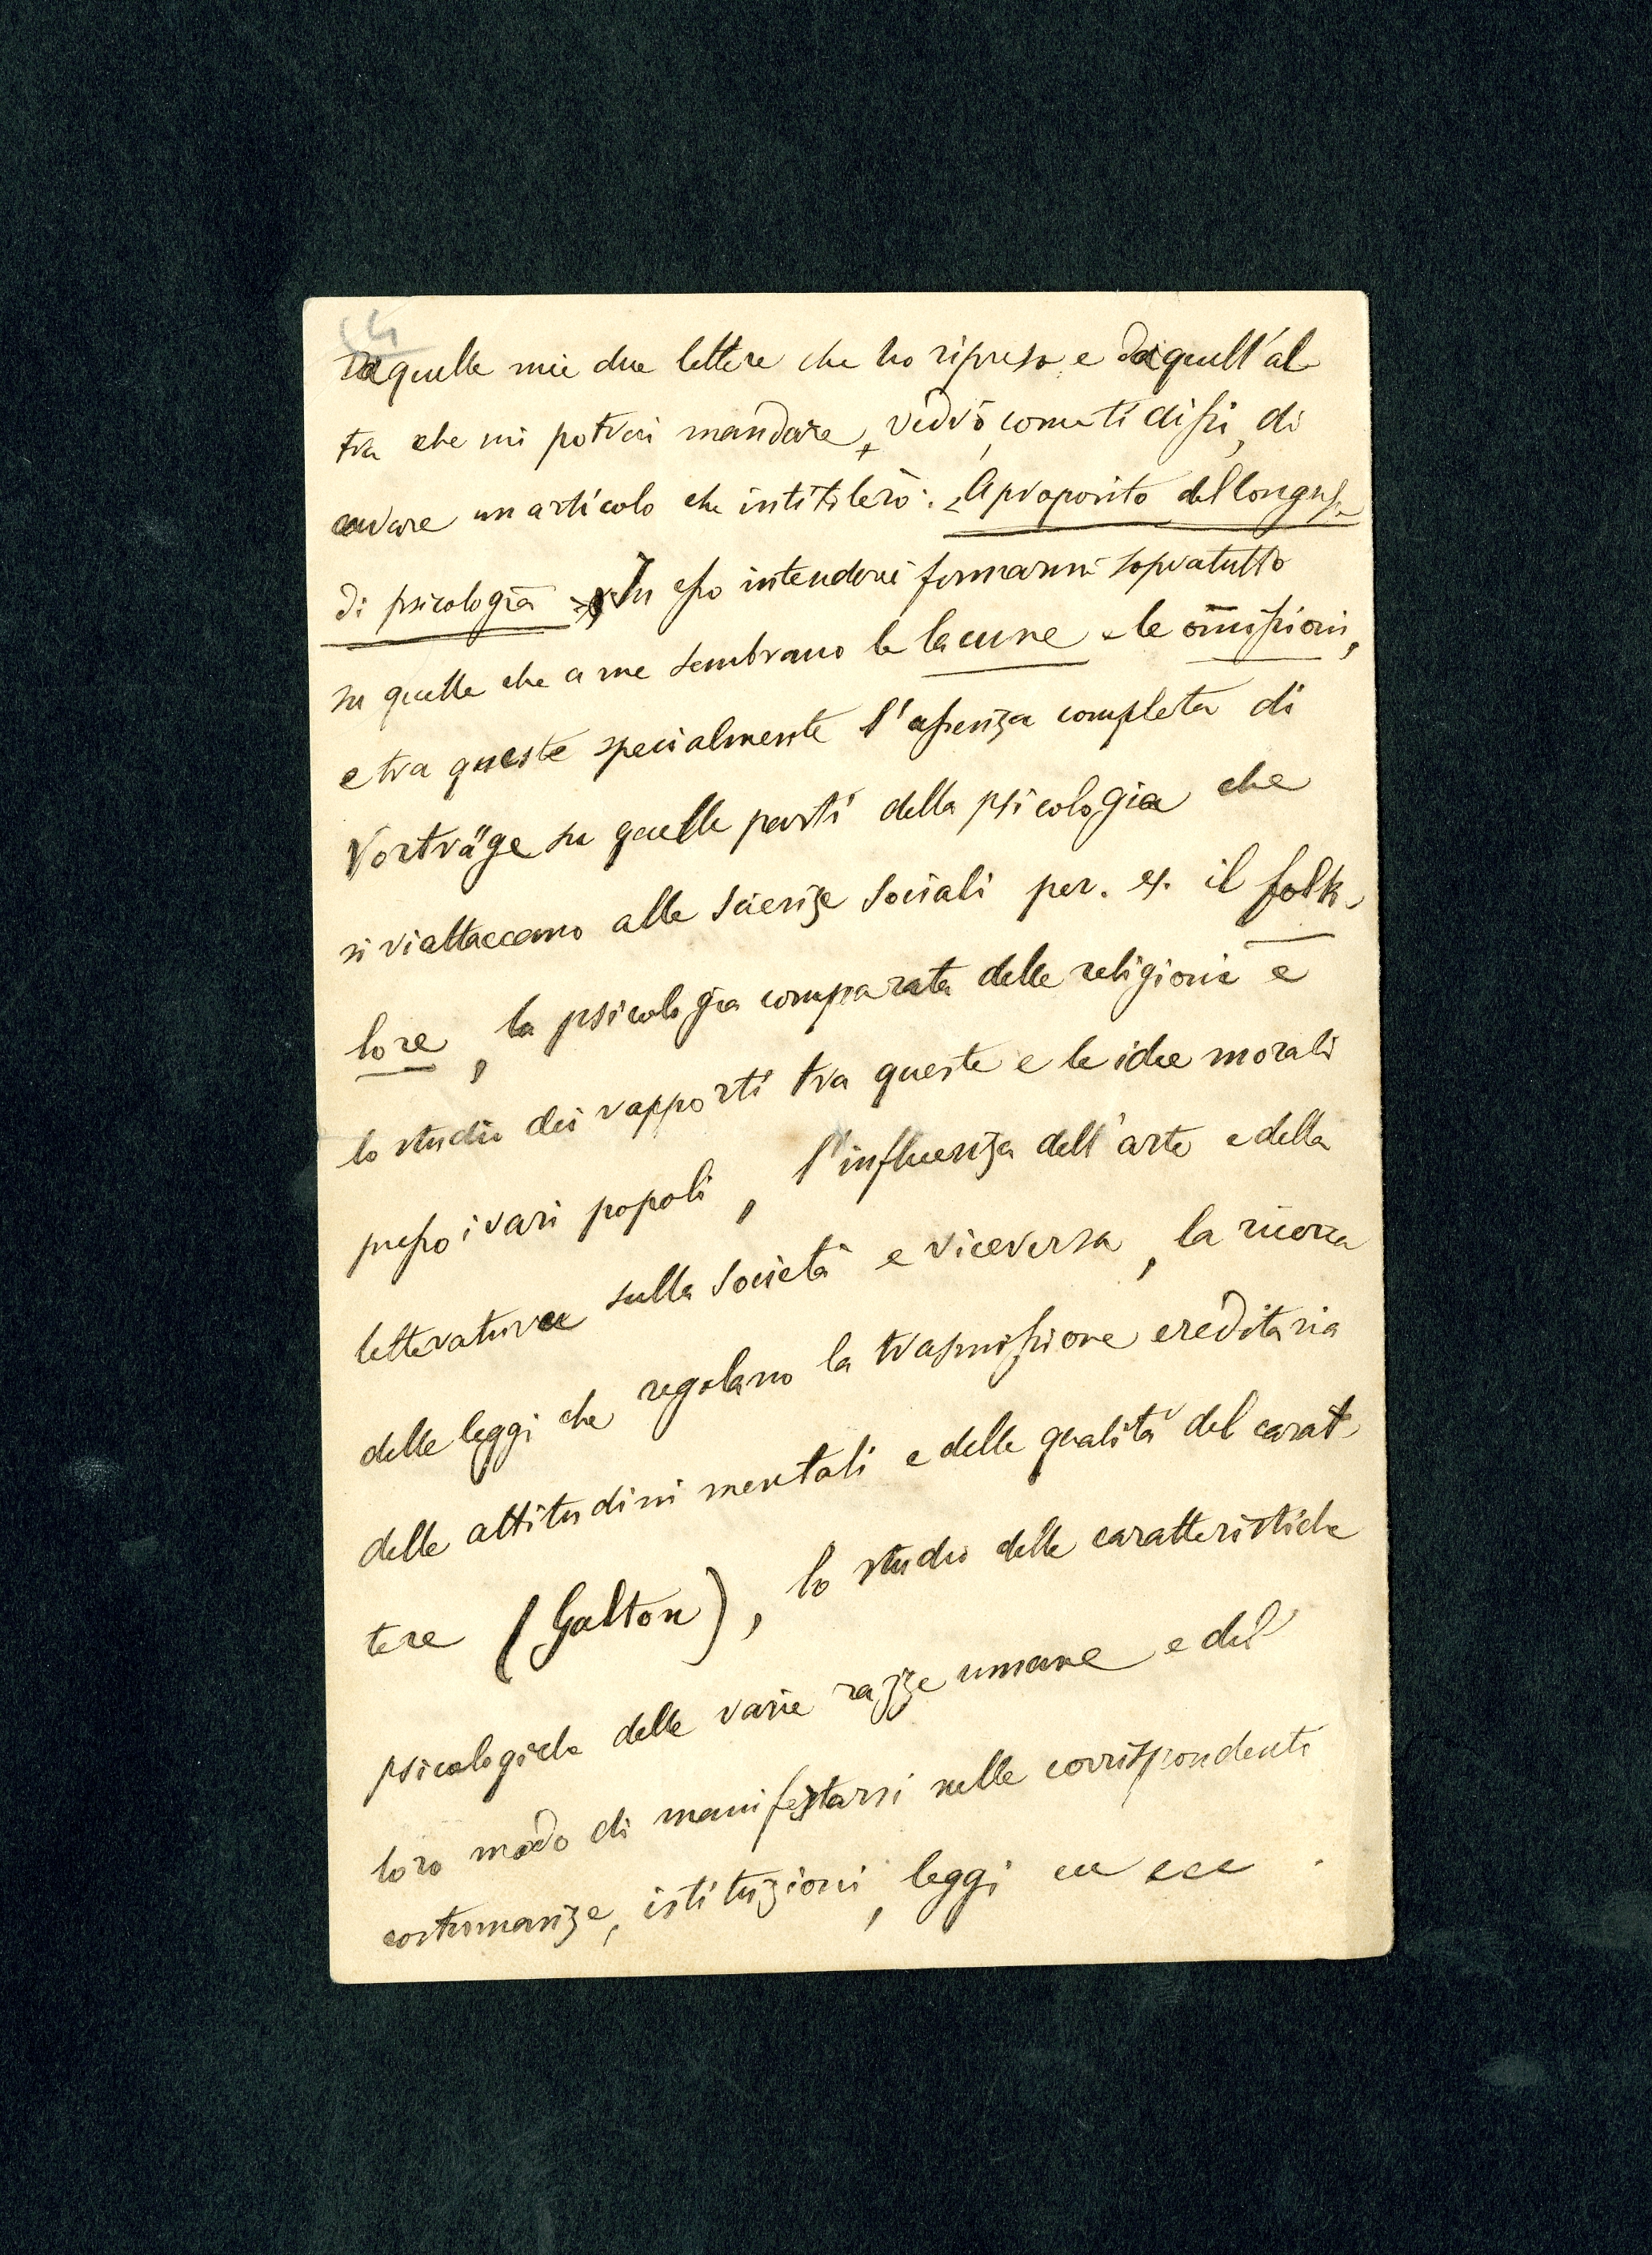 Da quelle mie due lettere che ho ripreso e da quell'al
tra che mi potresti mandare, vedrò, come ti dissi, di
cavare un articolo che intitolerò: «A proposito del Congresso
di psicologia» In esso intenderei fermarmi sopratutto
su quelle che a me sembrano le lacune e le omissioni,
e tra queste specialmente l'assenza completa di
Vorträge su quelle parti della psicologia che
si riattaccano alle scienze sociali per. es. il folk-
lore, la psicologia comparata delle religioni e
lo studio dei rapporti tra queste e le idee morali
presso i vari popoli, l'influenza dell'arte e della
letteratura sulla società e viceversa, la ricerca
delle leggi che regolano la trasmissione ereditaria
delle attitudini mentali e delle qualità del carat-
tere (Galton), lo studio delle caratteristiche
psicologiche delle varie razze umane e del
loro modo di manifestarsi nelle corrispondenti
costumanze, istituzioni, leggi ecc ecc.